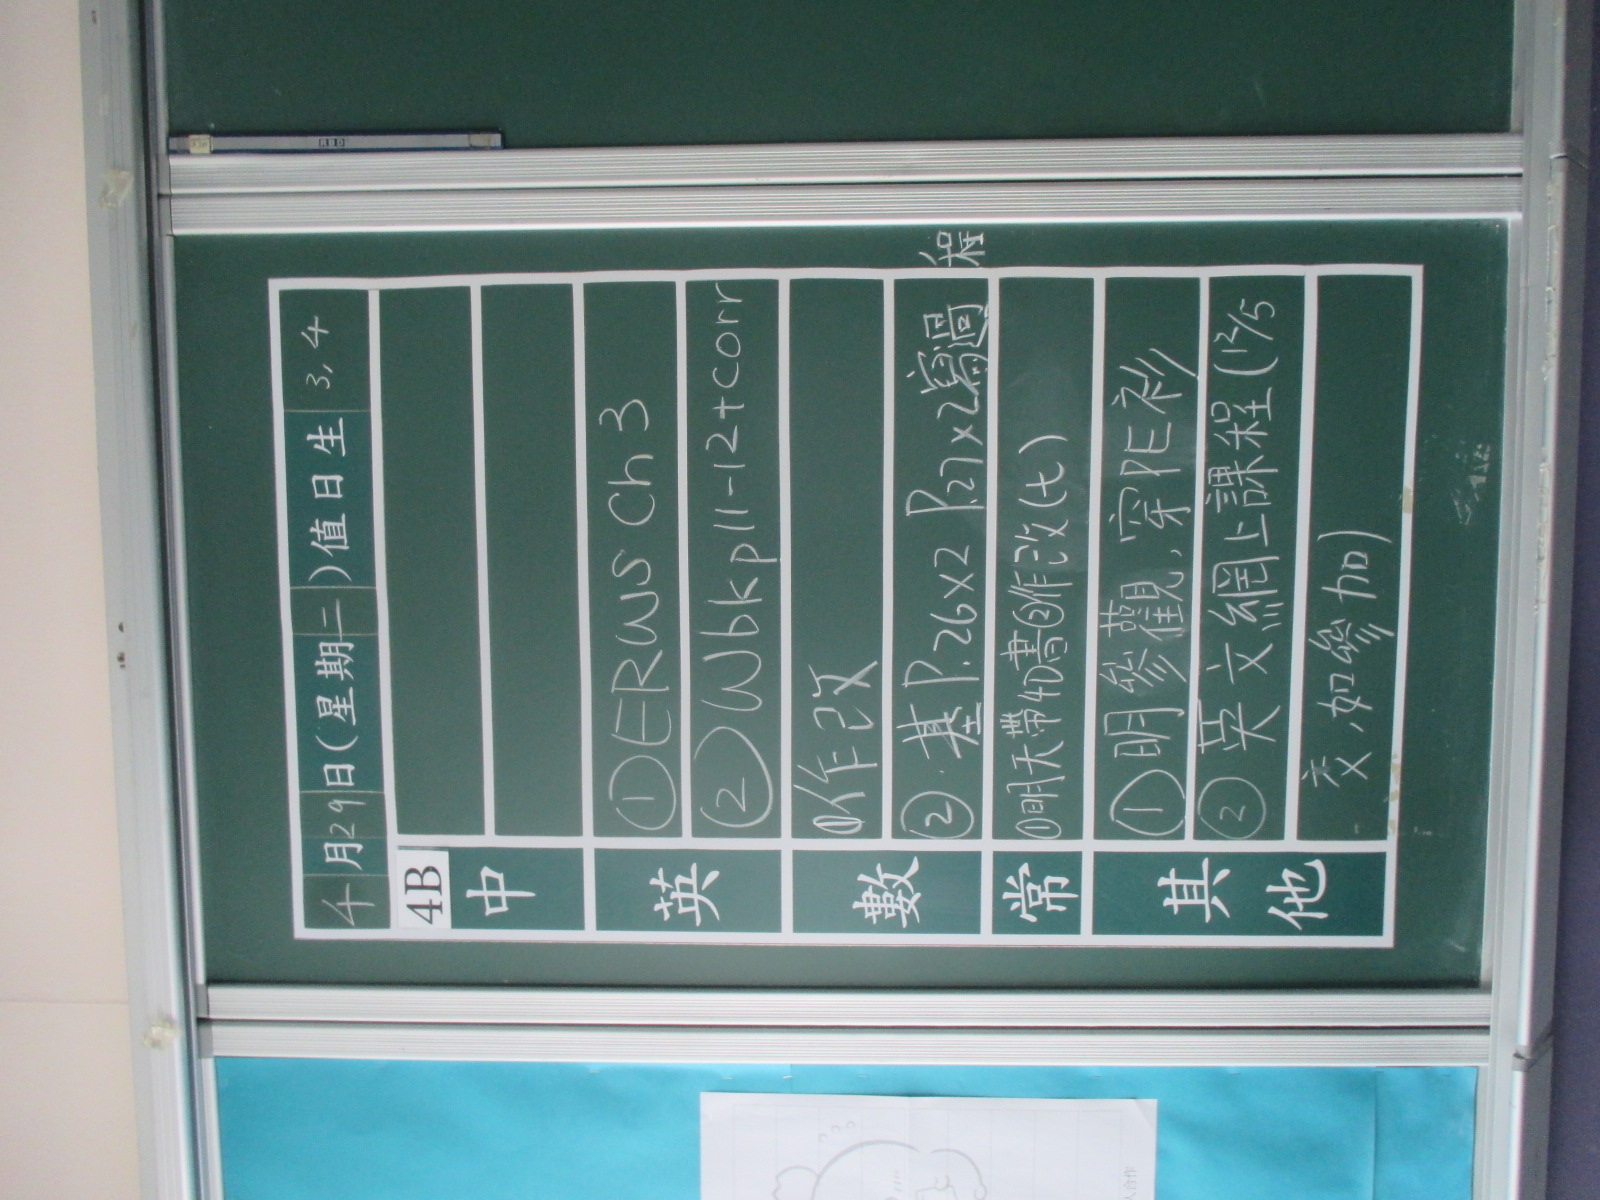 4月29日(星期二)值日生 3,4
4B
中
英
① ERWS Ch 3
② Wbk p11-12+corr
數
①作改
②.基P.26×2 P.27×2寫過程
常
①明天帶4D書②作改(七)
其他
①明參觀,穿P.E衫
②英文網上課程(12/5
交,如參加)